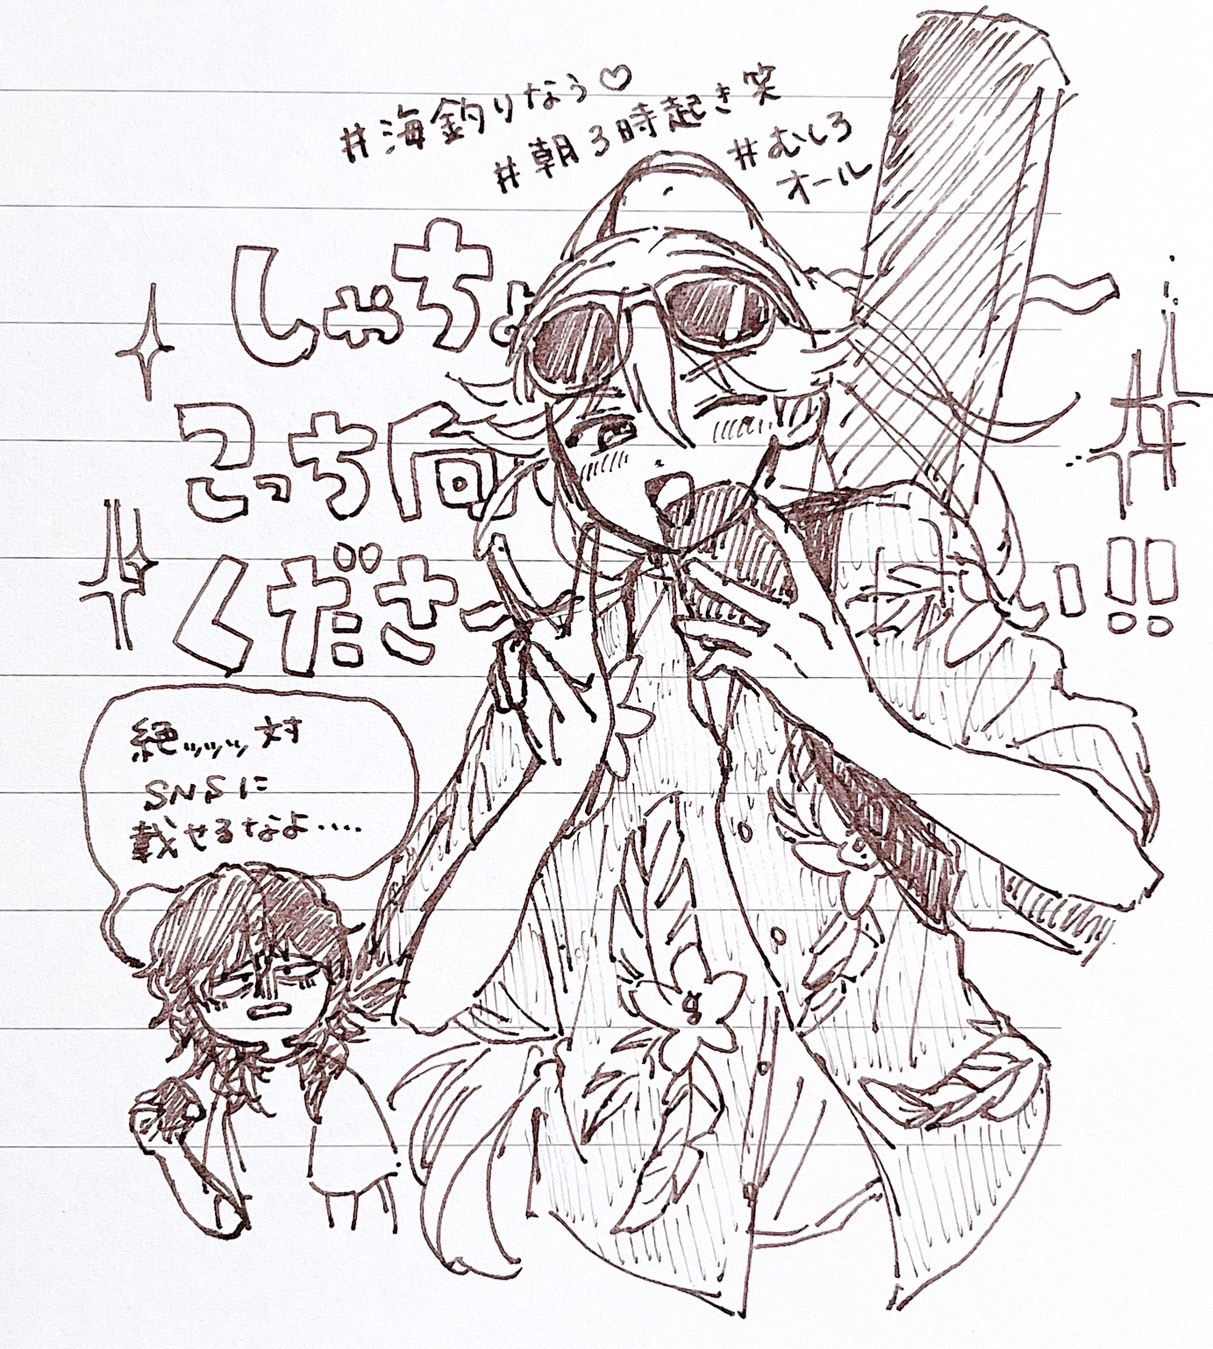 #海釣りなう♡
#朝3時起き笑
#むしろ
オール
しゃちょ
こっち向
くださ
！！！
絶ッッッ対
SNSに
載せるなよ‥‥